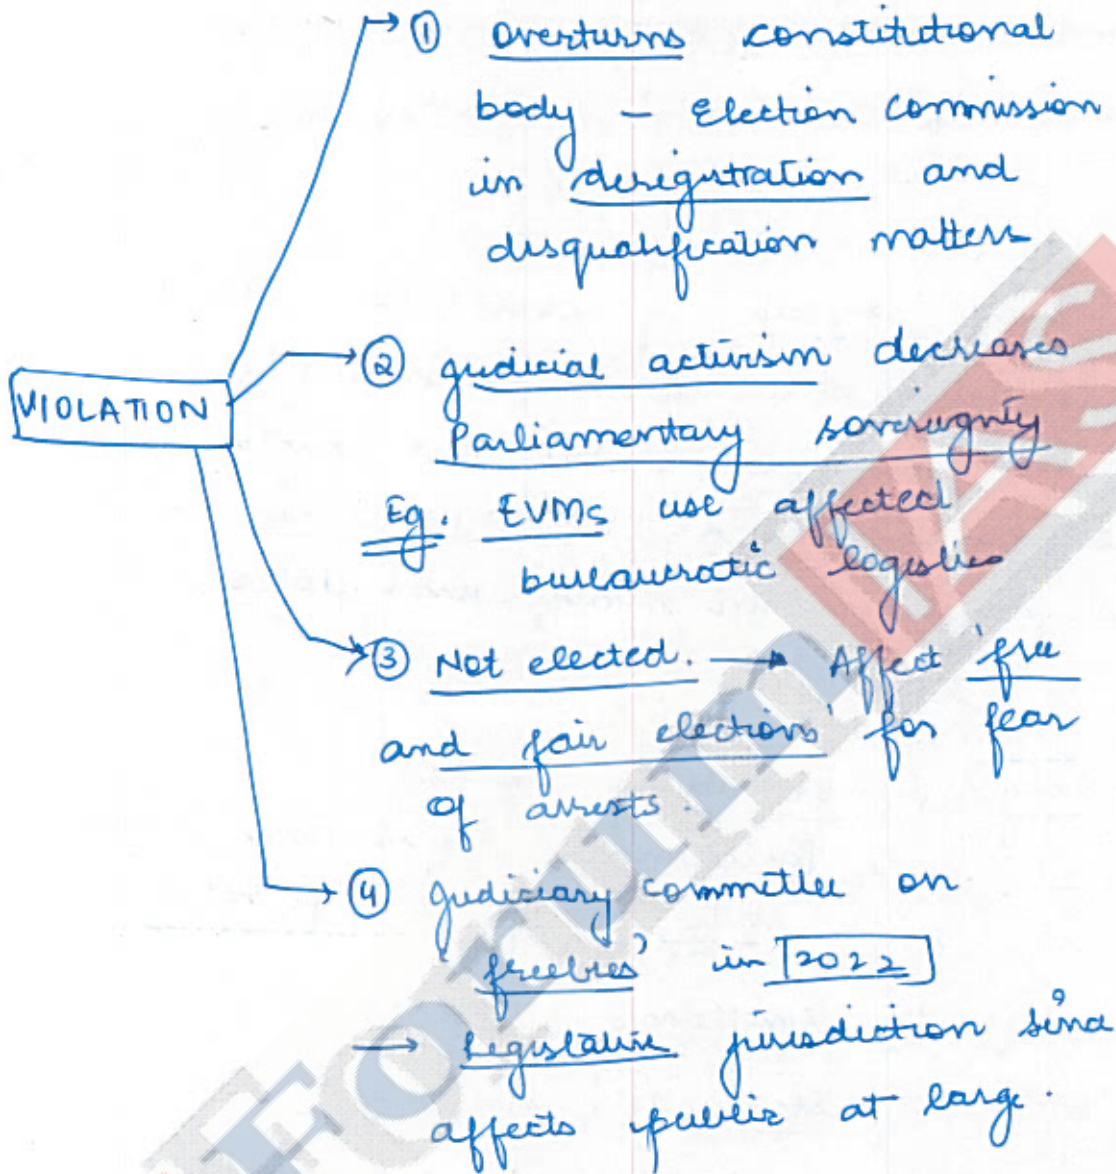 → ① Overturns constitutional
body – Election Commission
in deregistration and
disqualification matters
VIOLATION
→ ② Judicial activism decreases
Parliamentary sovereignty
Eg. EVMs use affected
bureaucratic logistics
→ ③ Not elected. → Affect 'free
and fair elections' for fear
of arrests.
→ ④ Judiciary committee on
'freebies' in 2022
→ Legislative jurisdiction since
affects public at large.
ForumIAS